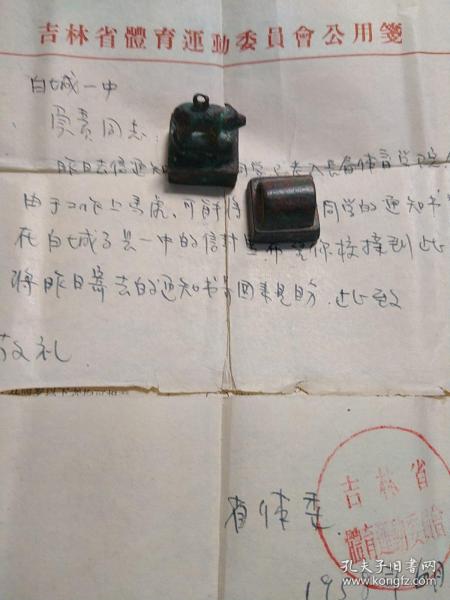 吉林省體育運動委員會公用箋
白城一中
负责同志：
昨日去信通知 同学已考入长春体育学院
由于工作上马虎，可能将 同学的通知书
在白城子县一中的信封 希望你校接到此
将昨日寄去的通知书寄回来是盼．此致
敬礼
省体委
吉林省
體育運動委員會
195
孔夫子旧书网
www.kongfz.com